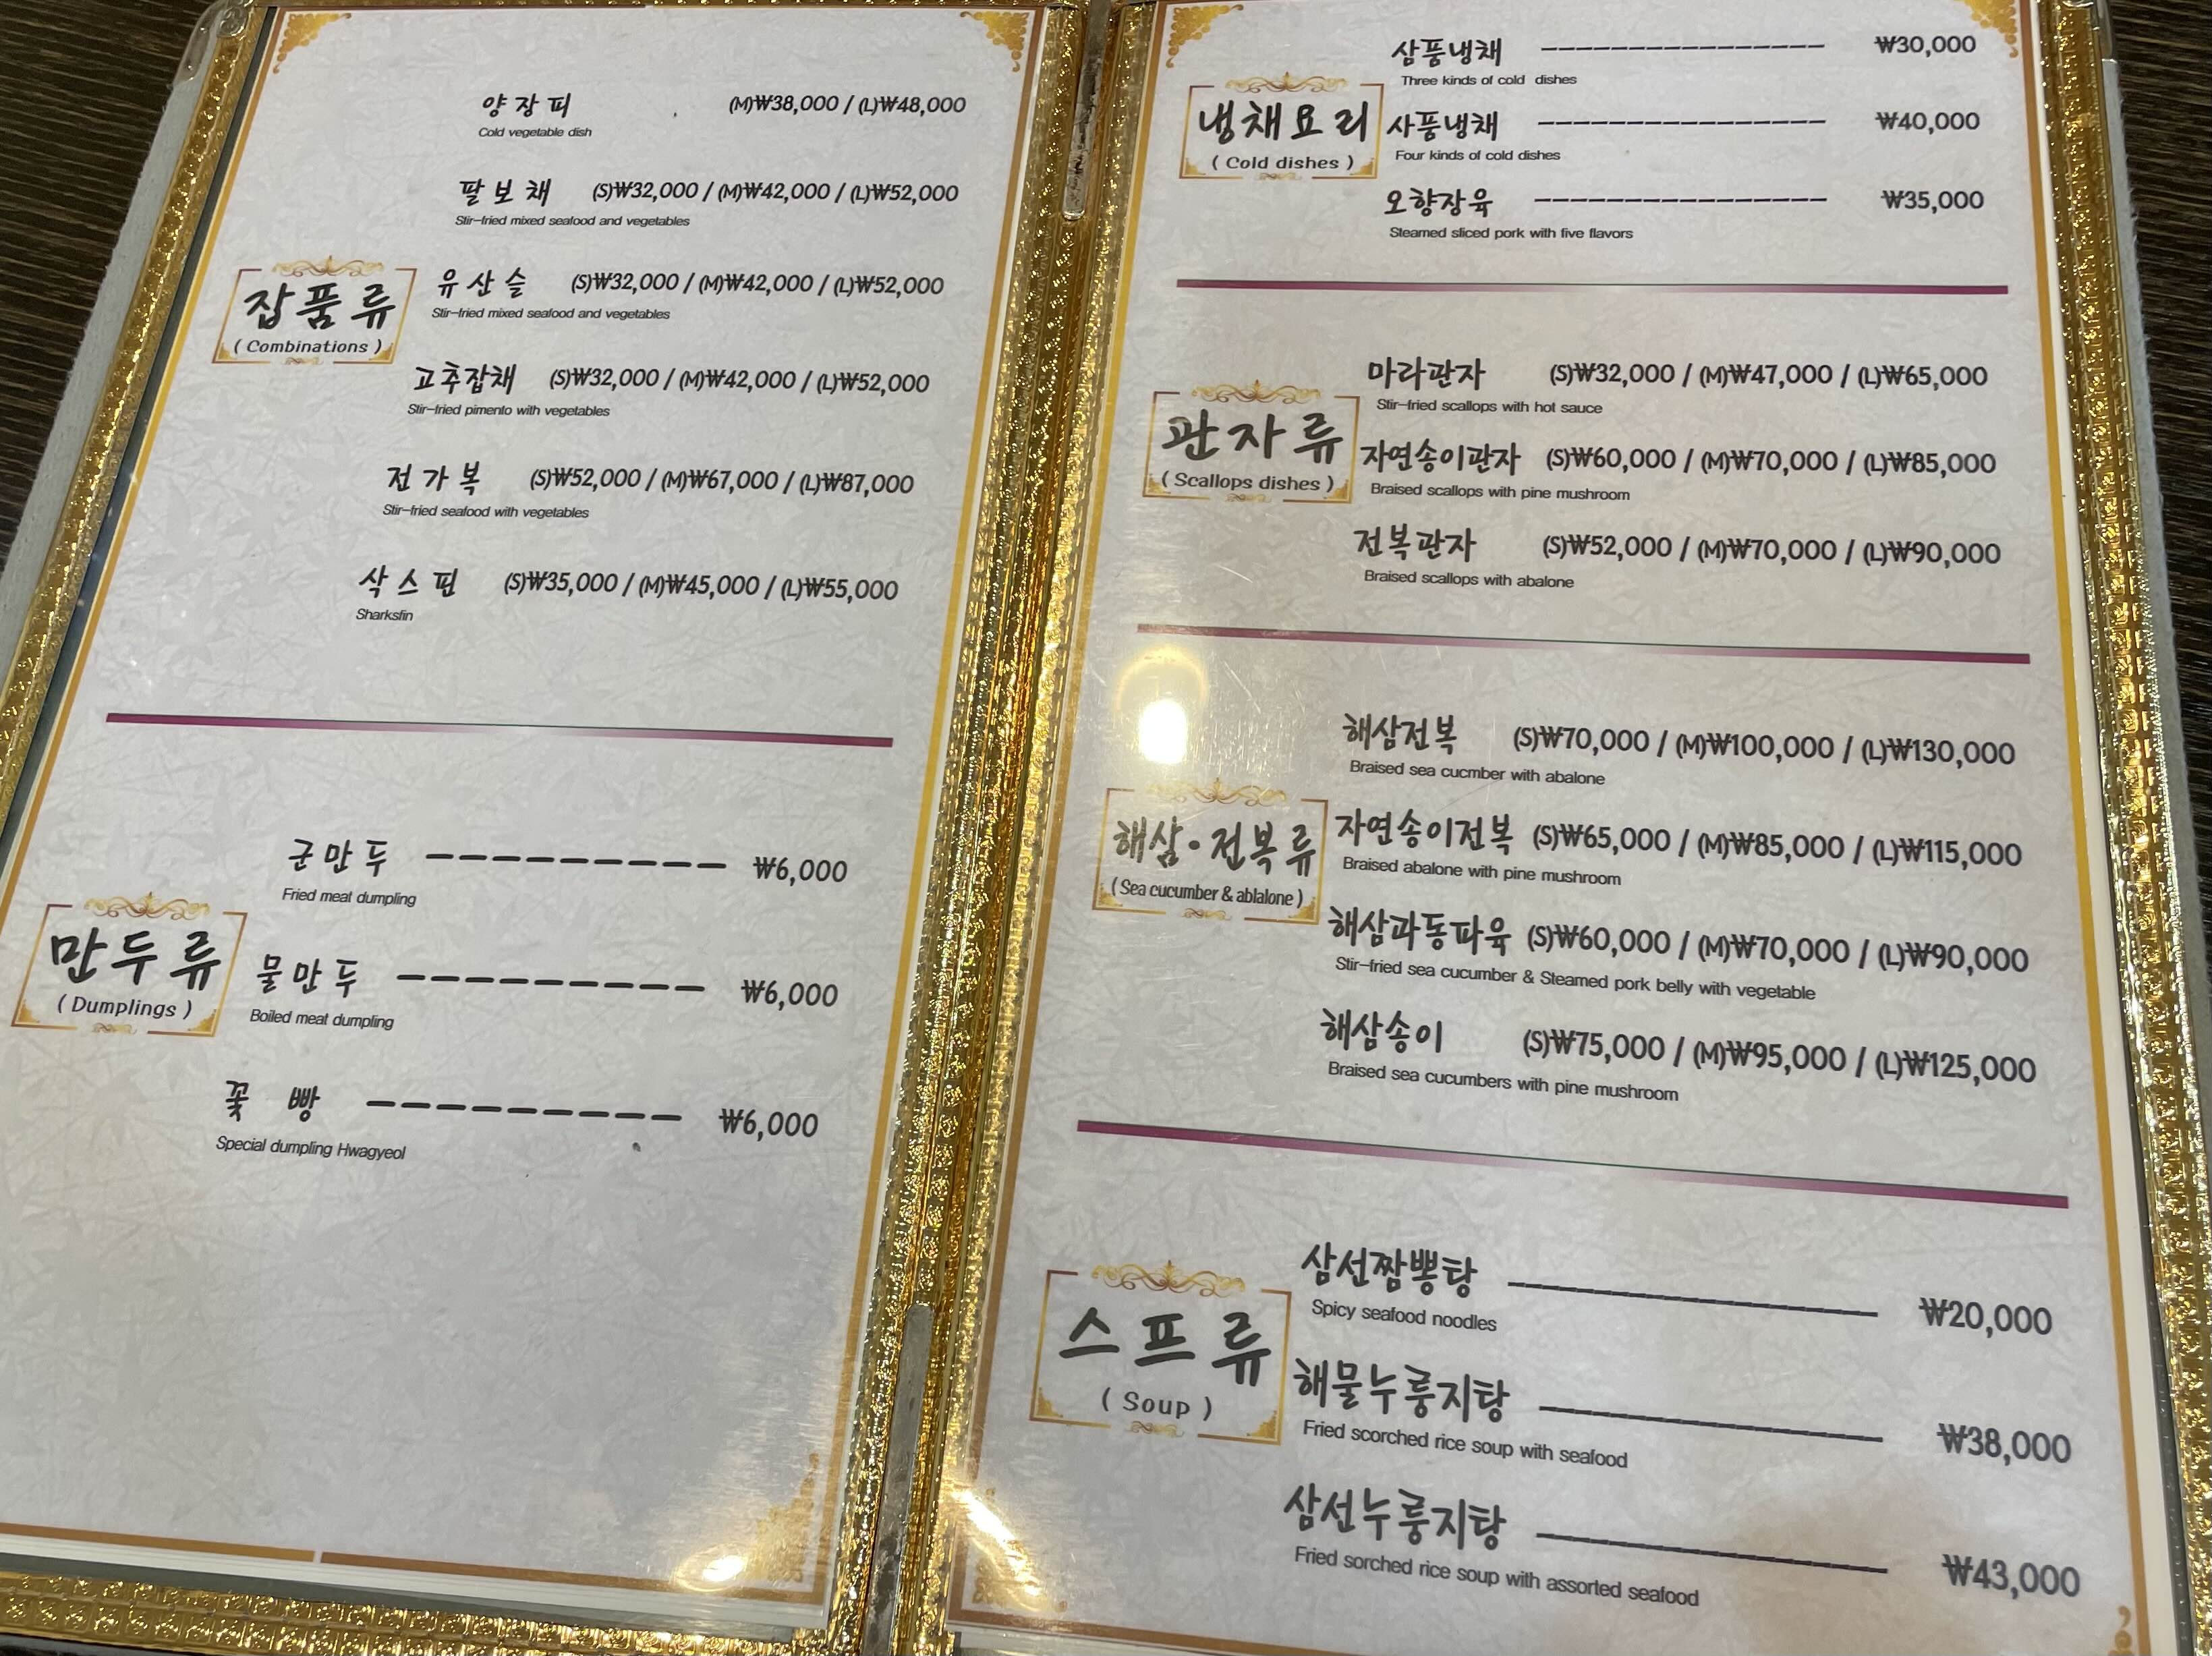 양장피 (M)₩38,000 / (L)₩48,000
Cold vegetable dish
팔보채 (S)₩32,000 / (M)₩42,000 / (L)₩52,000
Stir-fried mixed seafood and vegetables
잡품류
( Combinations )
유산슬 (S)₩32,000 / (M)₩42,000 / (L)₩52,000
Stir-fried mixed seafood and vegetables
고추잡채 (S)₩32,000 / (M)₩42,000 / (L)₩52,000
Stir-fried pimento with vegetables
전가복 (S)₩52,000 / (M)₩67,000 / (L)₩87,000
Stir-fried seafood with vegetables
삭스핀 (S)₩35,000 / (M)₩45,000 / (L)₩55,000
Sharksfin
군만두 ₩6,000
Fried meat dumpling
만두류
( Dumplings )
물만두 ₩6,000
Boiled meat dumpling
꽃빵 ₩6,000
Special dumpling Hwagyeol
삼품냉채 ₩30,000
Three kinds of cold dishes
냉채요리
( Cold dishes )
사품냉채 ₩40,000
Four kinds of cold dishes
오향장육 ₩35,000
Steamed sliced pork with five flavors
마라관자 (S)₩32,000 / (M)₩47,000 / (L)₩65,000
Stir-fried scallops with hot sauce
관자류
( Scallops dishes )
자연송이관자 (S)₩60,000 / (M)₩70,000 / (L)₩85,000
Braised scallops with pine mushroom
전복관자 (S)₩52,000 / (M)₩70,000 / (L)₩90,000
Braised scallops with abalone
해삼전복 (S)₩70,000 / (M)₩100,000 / (L)₩130,000
Braised sea cucmber with abalone
해삼·전복류
( Sea cucumber & ablalone )
자연송이전복 (S)₩65,000 / (M)₩85,000 / (L)₩115,000
Braised abalone with pine mushroom
해삼과동파육 (S)₩60,000 / (M)₩70,000 / (L)₩90,000
Stir-fried sea cucumber & Steamed pork belly with vegetable
해삼송이 (S)₩75,000 / (M)₩95,000 / (L)₩125,000
Braised sea cucumbers with pine mushroom
삼선짬뽕탕 ₩20,000
Spicy seafood noodles
스프류
( Soup )
해물누룽지탕 ₩38,000
Fried scorched rice soup with seafood
삼선누룽지탕 ₩43,000
Fried sorched rice soup with assorted seafood